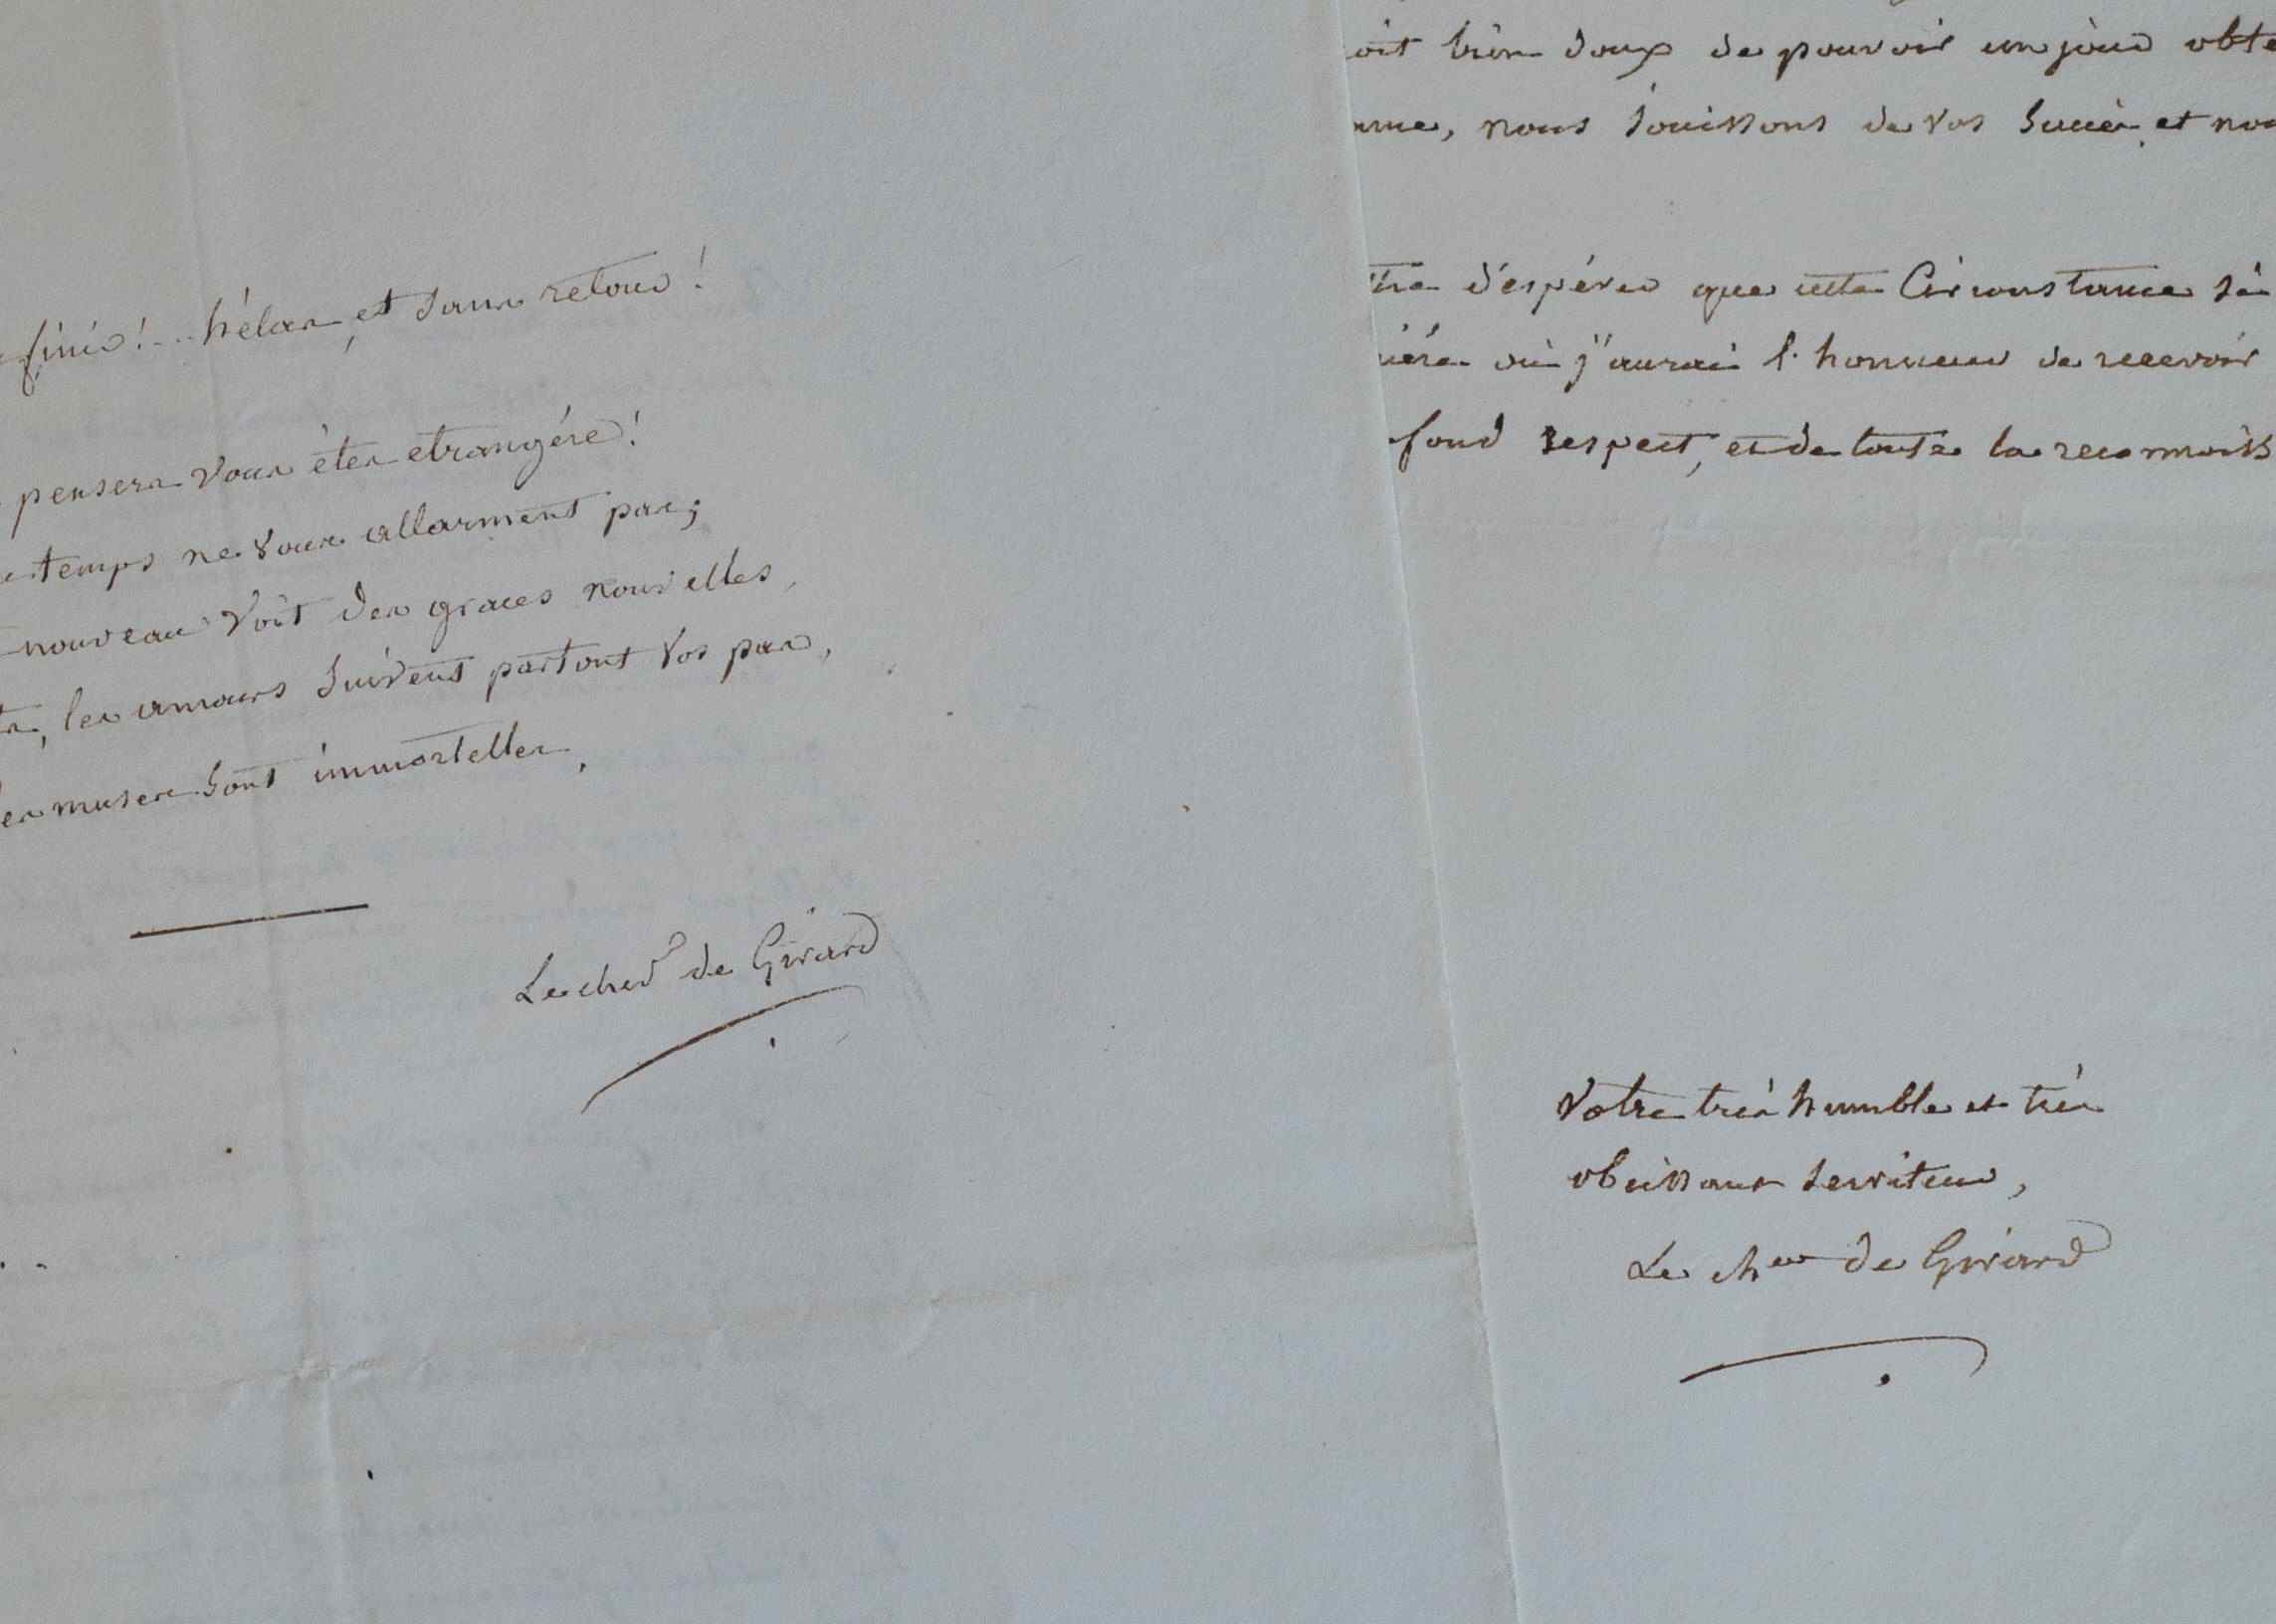 finir!... hélas, et sans retour!
pensers vous êtes etrangére!
temps ne vous allarment pas;
nouveau voit des graces nouvelles,
les amours suivent partout vos pas,
muses sont immortelles,
Le chev.r de Girard
oit bien doux de pouvoir un jour obte
nous jouissons de vos succès, et nou
d'espérer que cette Circonstance
où j'aurai l'honneur de recevoir
fond respect, et de toute la reconnoiss
Votre très humble et très
obeissant serviteur,
Le cher de Girard